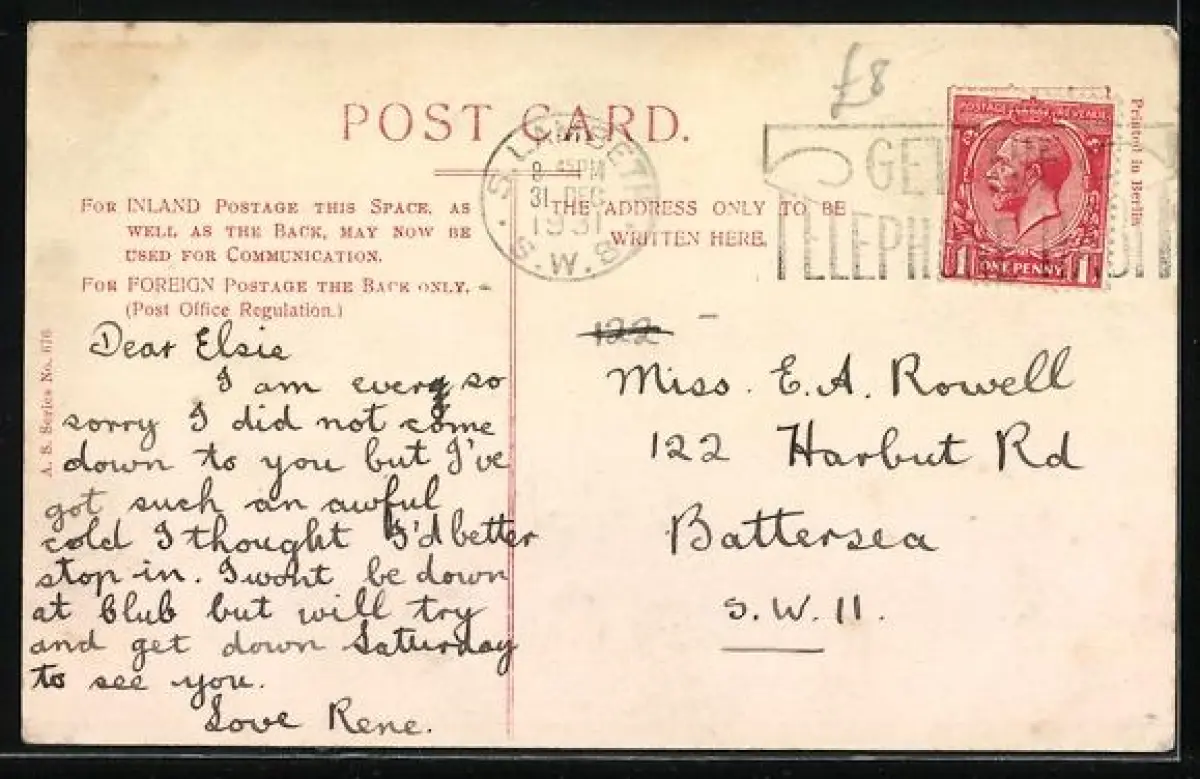 £8
POST CARD.
S. LAMBETH
8 45 PM
31 DEC
1931
S.W.8
GET
TELEPH
POSTAGE REVENUE
1 ONE PENNY 1
Printed in Berlin
FOR INLAND POSTAGE THIS SPACE, AS
WELL AS THE BACK, MAY NOW BE
USED FOR COMMUNICATION.
FOR FOREIGN POSTAGE THE BACK ONLY.
(Post Office Regulation.)
THE ADDRESS ONLY TO BE
WRITTEN HERE.
A. S. Series No. 676
Dear Elsie
I am every so
sorry I did not come
down to you but I've
got such an awful
cold I thought I'd better
stop in. I wont be down
at Club but will try
and get down Saturday
to see you.
Love Rene.
122
Miss. E. A. Rowell
122 Harbut Rd
Battersea
S. W. 11.